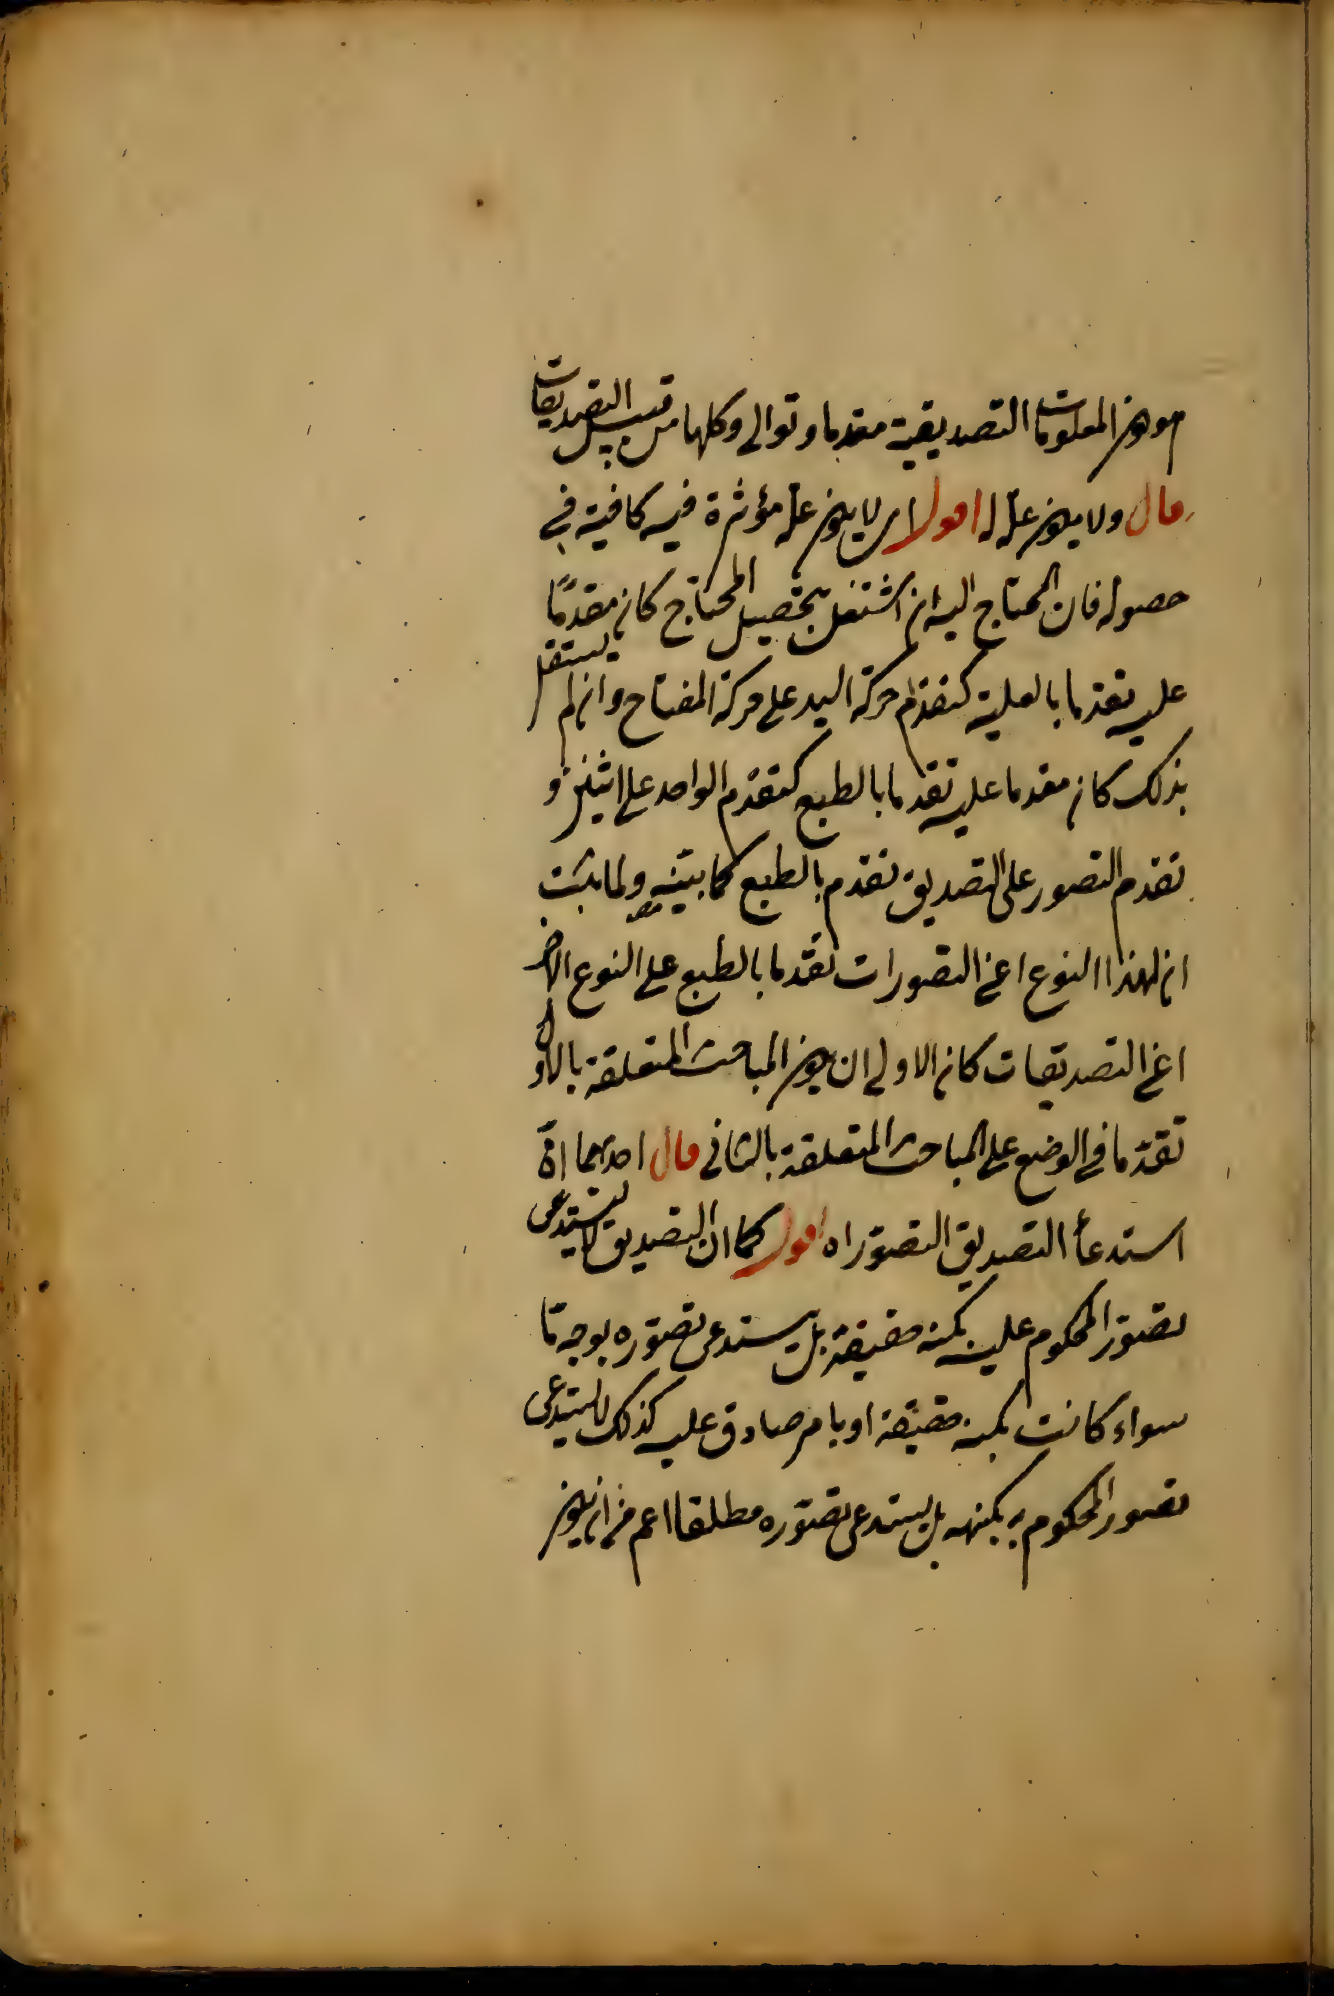 موهن المعلومات التصديقية مقدما وتوالى وكلها من قبيل التصديقات
قال ولا يكون علة له اقول اى لا يكون علة مؤثرة فيه كافية فى
حصوله فان المحتاج اليه ان اشتغل بتحصيل المحتاج كان مقدمًا
عليه تقدما بالعلية كتقدم حركة اليد على حركة المفتاح وان لم يستقل
بذلك كان مقدما عليه تقدما بالطبع كتقدم الواحد على اثنين و
تقدم التصور على التصديق تقدم بالطبع كما بينه ولما ثبت
ان لهذا النوع اعنى التصورات تقدما بالطبع على النوع الاخر
اعنى التصديقات كان الاولى ان يكون المباحث المتعلقة بالاول
تقدما فى الوضع على المباحث المتعلقة بالثانى قال احديهما انّه
استدعأ التصديق التصور اه اقول كما ان التصديق لا يستدعى
تصور المحكوم عليه بكنه حقيقة بل يستدعى تصوره بوجه مّا
سواء كانت بكنه حقيقة او بامر صادق عليه كذلك لا يستدعى
تصور المحكوم به بكنهه بل يستدعى تصوره مطلقا اعم من ان يكون